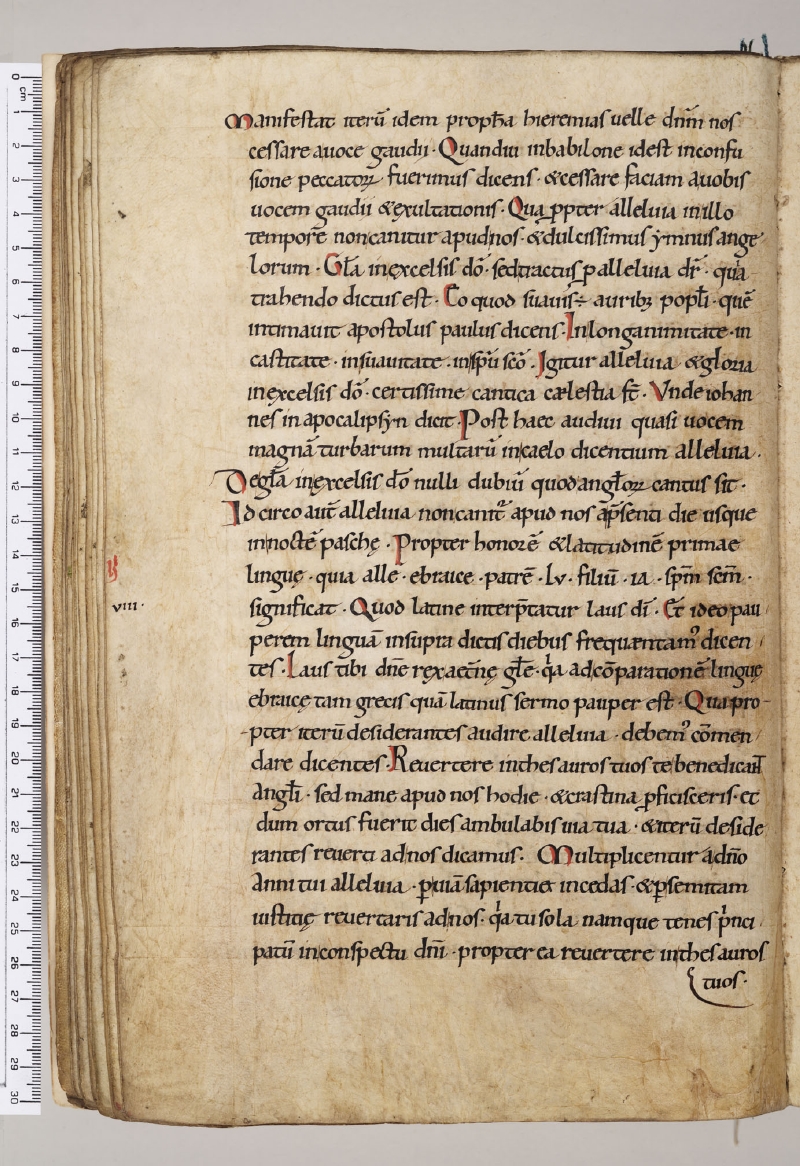 Manifestat iterū idem prophā hieremias uelle dnm̄ nos
cessare auoce gaudii · Quandiu inbabilone idest inconfu
sione peccatorꝝ fuerimus dicens · &cessare faciam auobis
uocem gaudii &exultationis · Qua ꝓpter alleluia inillo
tempore noncanitur apudnos · &dulcissimus ymnus ange
lorum · Gła inexcelsis dō · sedtractus ꝑ alleluia dr̄ · quia
trahendo dictus est · Eo quod suauis ÷ auribꝫ popłi · quē
intimauit apostolus paulus dicens · Inlonganimitate · in
castitate · insuauitate · inspū scō · Igitur alleluia &gloria
inexcelsis dō · certissime cantica cælestia st̄ · Vnde iohan
nes in apocalipsyn dicit · Post haec audiui quasi uocem
magnā turbarum multarū incaelo dicentium alleluia ·
De gła inexcelsis dō nulli dubiū quod angłorꝝ cantus sit ·
Id circo aut̄ alleluia noncantr̄ apud nos ap̄senti die usque
innoctē paschę · Propter honorē &latitudinē primae
linguę · quia alle · ebraice · patrē · lv · filiū · ia · spm̄ scm̄ ·
viii ·
significat · Quod latine interp̄tatur laus dī · Et ideo pau
perem linguā insupra dictis diebus frequentamꝰ dicen
tes · Laus tibi dn̄e rex aet̄nę głę · qa adcōparationē linguę
ebraicę tam grecis quā latinus sermo pauper est · Qua pro-
-pter iterū desiderantes audire alleluia · debemꝰ cōmen
dare dicentes · Reuertere inthesauros tuos te benedicant̄
Angłi · sed mane apud nos hodie · &crastina ꝓficisceris · et
dum ortus fuerit dies ambulabis uia tua · &iterū deside
rantes reuerti adnos dicamus · Multiplicentur adn̄o
Anni tui alleluia · ꝑ uiā sapientię incedas · &ꝑ semitam
iustitię reuertaris adnos · qa tu sola namque tenes p̄nci
patū inconspectu dnī · propter ea reuertere inthesauros
tuos ·